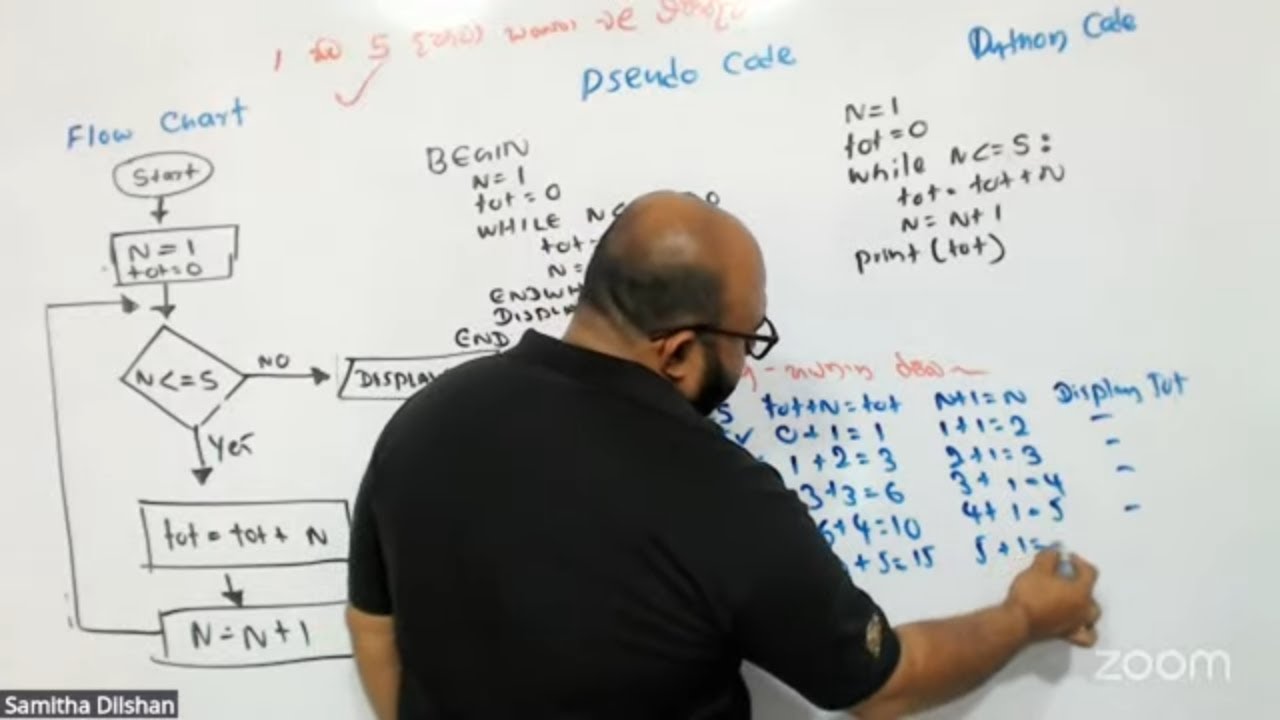 1 සිට 5
Psendo Code
Python Code
Flow Chart
Start
N=1
tot=0
N<=5
NO
DISPLAY
Yes
tot = tot + N
N=N+1
BEGIN
N=1
tot=0
WHILE
tot=
N=
ENDWH
DISPLA
END
N=1
tot=0
while N<=5:
tot = tot + N
N = N+1
print (tot)
5 tot+N=tot N+1=N Display Tot
✓ 0+1=1 1+1=2 -
1+2=3 2+1=3 -
3+3=6 3+1=4 -
6+4=10 4+1=5 -
+5=15 5+1=
zoom
Samitha Dilshan